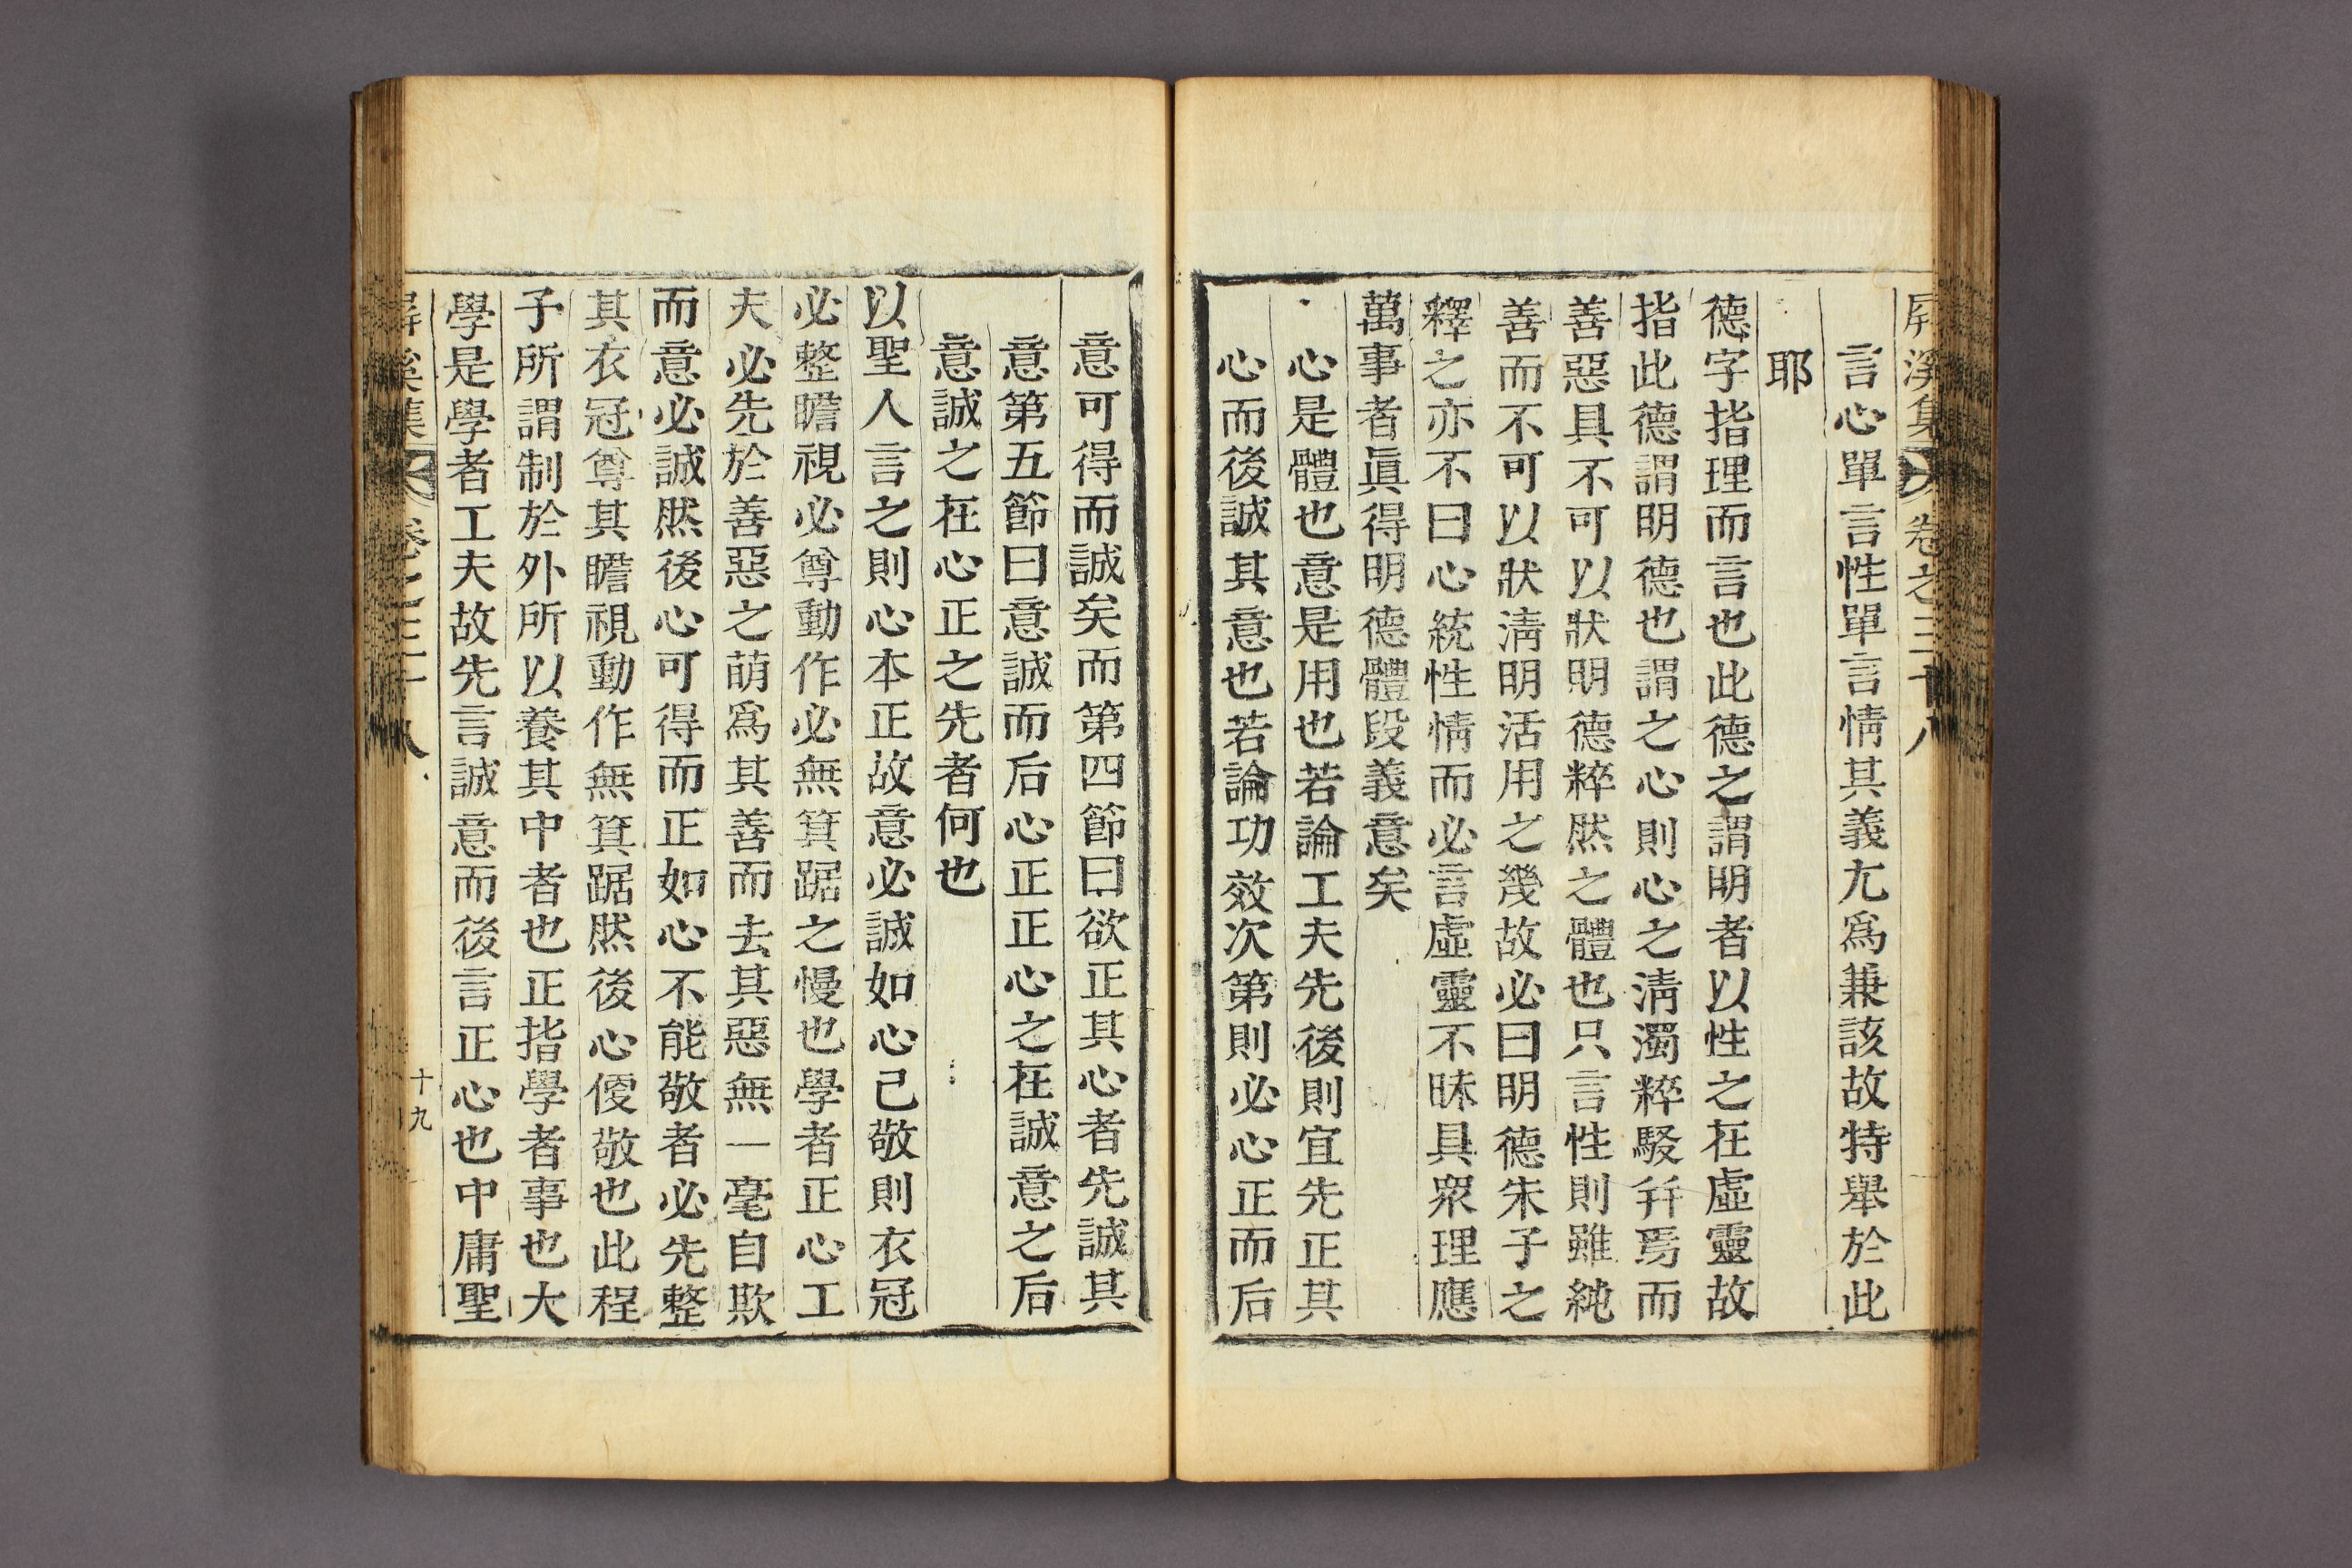 屛溪集 卷之三十八
言心單言性單言情其義尤爲兼該故特舉於此
耶
德字指理而言也此德之謂明者以性之在虛靈故
指此德謂明德也謂之心則心之淸濁粹駁幷焉而
善惡具不可以狀明德粹然之體也只言性則雖純
善而不可以狀淸明活用之幾故必曰明德朱子之
釋之亦不曰心統性情而必言虛靈不昧具衆理應
萬事者眞得明德體段義意矣
心是體也意是用也若論工夫先後則宜先正其
心而後誠其意也若論功效次第則必心正而后
意可得而誠矣而第四節曰欲正其心者先誠其
意第五節曰意誠而后心正正心之在誠意之后
意誠之在心正之先者何也
以聖人言之則心本正故意必誠如心已敬則衣冠
必整瞻視必尊動作必無箕踞之慢也學者正心工
夫必先於善惡之萌爲其善而去其惡無一毫自欺
而意必誠然後心可得而正如心不能敬者必先整
其衣冠尊其瞻視動作無箕踞然後心便敬也此程
子所謂制於外所以養其中者也正指學者事也大
學是學者工夫故先言誠意而後言正心也中庸聖
屛溪集 卷之三十八 十九